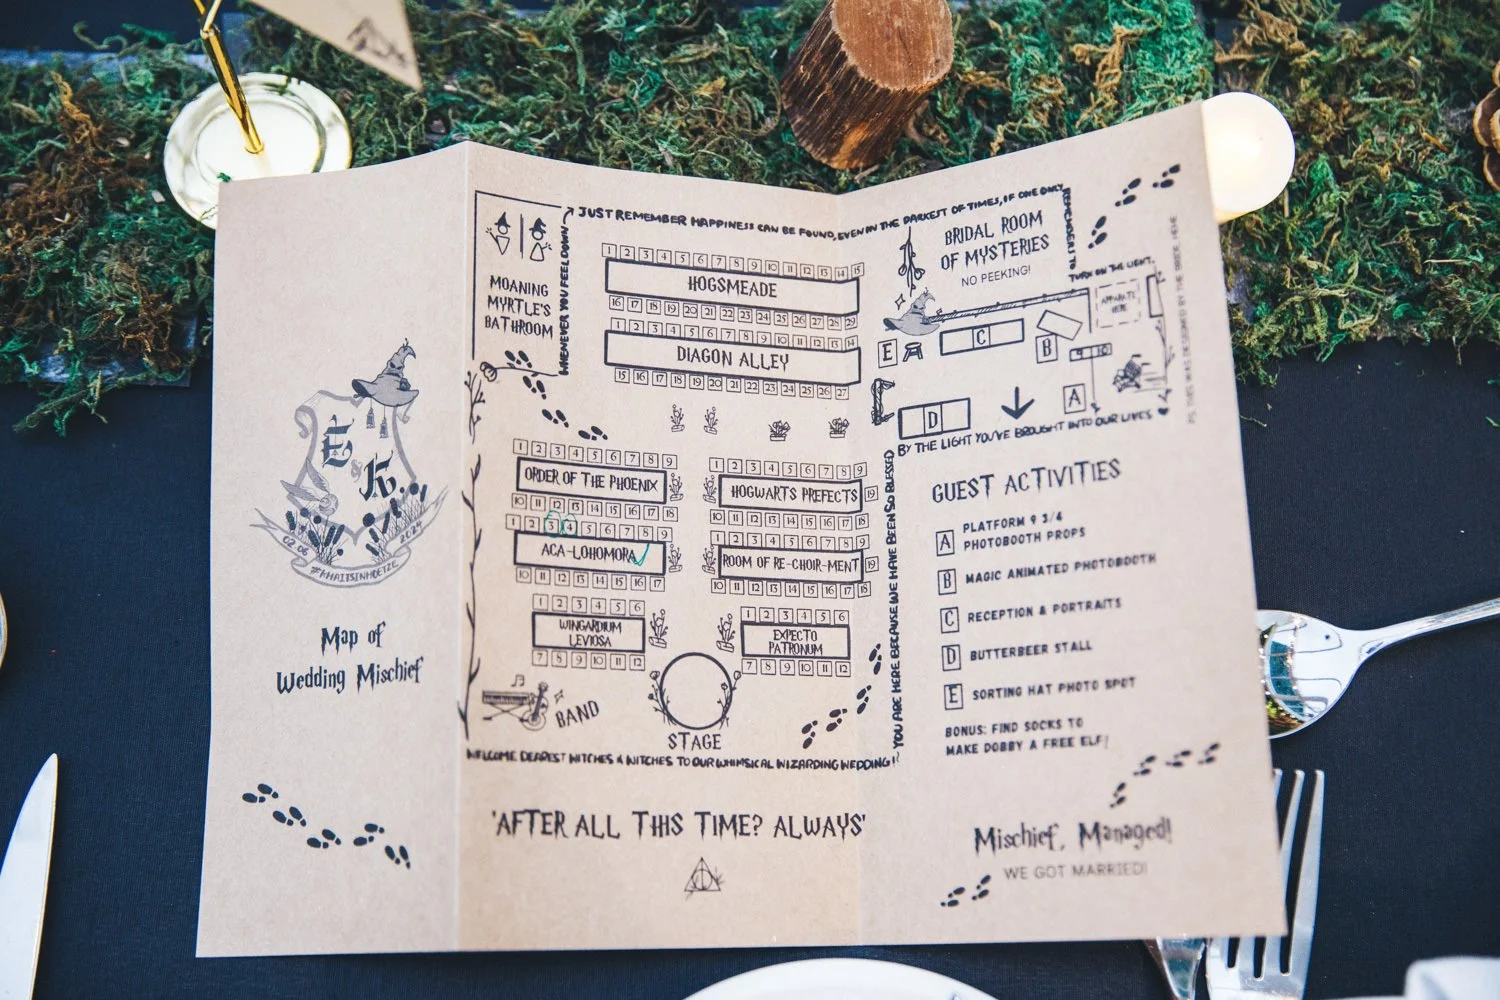 E & K
02.06
2024
#KHAITSINHOETZE
Map of
Wedding Mischief
MOANING
MYRTLE'S
BATHROOM
WHENEVER YOU FEEL DOWN
JUST REMEMBER HAPPINESS CAN BE FOUND, EVEN IN THE DARKEST OF TIMES, IF ONE ONLY
REMEMBERS TO
TURN ON THE LIGHT.
1 2 3 4 5 6 7 8 9 10 11 12 13 14 15
HOGSMEADE
16 17 18 19 20 21 22 23 24 25 26 27 28 29
1 2 3 4 5 6 7 8 9 10 11 12 13 14
DIAGON ALLEY
15 16 17 18 19 20 21 22 23 24 25 26 27
1 2 3 4 5 6 7 8 9
ORDER OF THE PHOENIX
10 11 12 13 14 15 16 17 18
1 2 3 4 5 6 7 8 9
ACA-LOHOMORA
10 11 12 13 14 15 16 17
1 2 3 4 5 6
WINGARDIUM
LEVIOSA
7 8 9 10 11 12
1 2 3 4 5 6 7 8 9
HOGWARTS PREFECTS
19
10 11 12 13 14 15 16 17 18
1 2 3 4 5 6 7 8 9
ROOM OF RE-CHOIR-MENT
19
10 11 12 13 14 15 16 17 18
1 2 3 4 5 6
EXPECTO
PATRONUM
7 8 9 10 11 12
BAND
STAGE
WELCOME DEAREST WITCHES & WITCHES TO OUR WHIMSICAL WIZARDING WEDDING!
~ YOU ARE HERE BECAUSE WE HAVE BEEN SO BLESSED
BY THE LIGHT YOU'VE BROUGHT INTO OUR LIVES
'AFTER ALL THIS TIME? ALWAYS'
BRIDAL ROOM
OF MYSTERIES
NO PEEKING!
APPARATE
HERE
E
C
B
9 10
A
D
PS. THIS WAS DESIGNED BY THE BRIDE HEHE
GUEST ACTIVITIES
A PLATFORM 9 3/4
PHOTOBOOTH PROPS
B MAGIC ANIMATED PHOTOBOOTH
C RECEPTION & PORTRAITS
D BUTTERBEER STALL
E SORTING HAT PHOTO SPOT
BONUS: FIND SOCKS TO
MAKE DOBBY A FREE ELF!
Mischief, Managed!
WE GOT MARRIED!